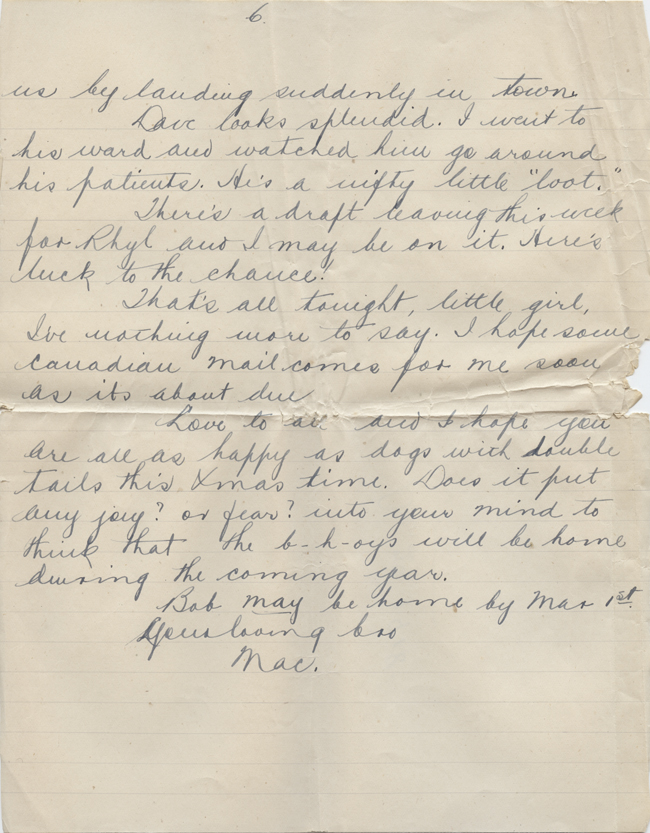 6.
us by landing suddenly in town.
Dave looks splendid. I went to
his ward and watched him go around
his patients. He's a nifty little "loot."
There's a draft leaving this week
for Rhyl and I may be on it. Here's
luck to the chance!
That's all tonight, little girl,
I've nothing more to say. I hope some
Canadian mail comes for me soon
as its about due
Love to all and I hope you
are all as happy as dogs with double
tails this Xmas time. Does it put
any joy? or fear? into your mind to
think that the b-h-oys will be home
during the coming year.
Bob may be home by Mar 1st.
Your loving bro
Mac.